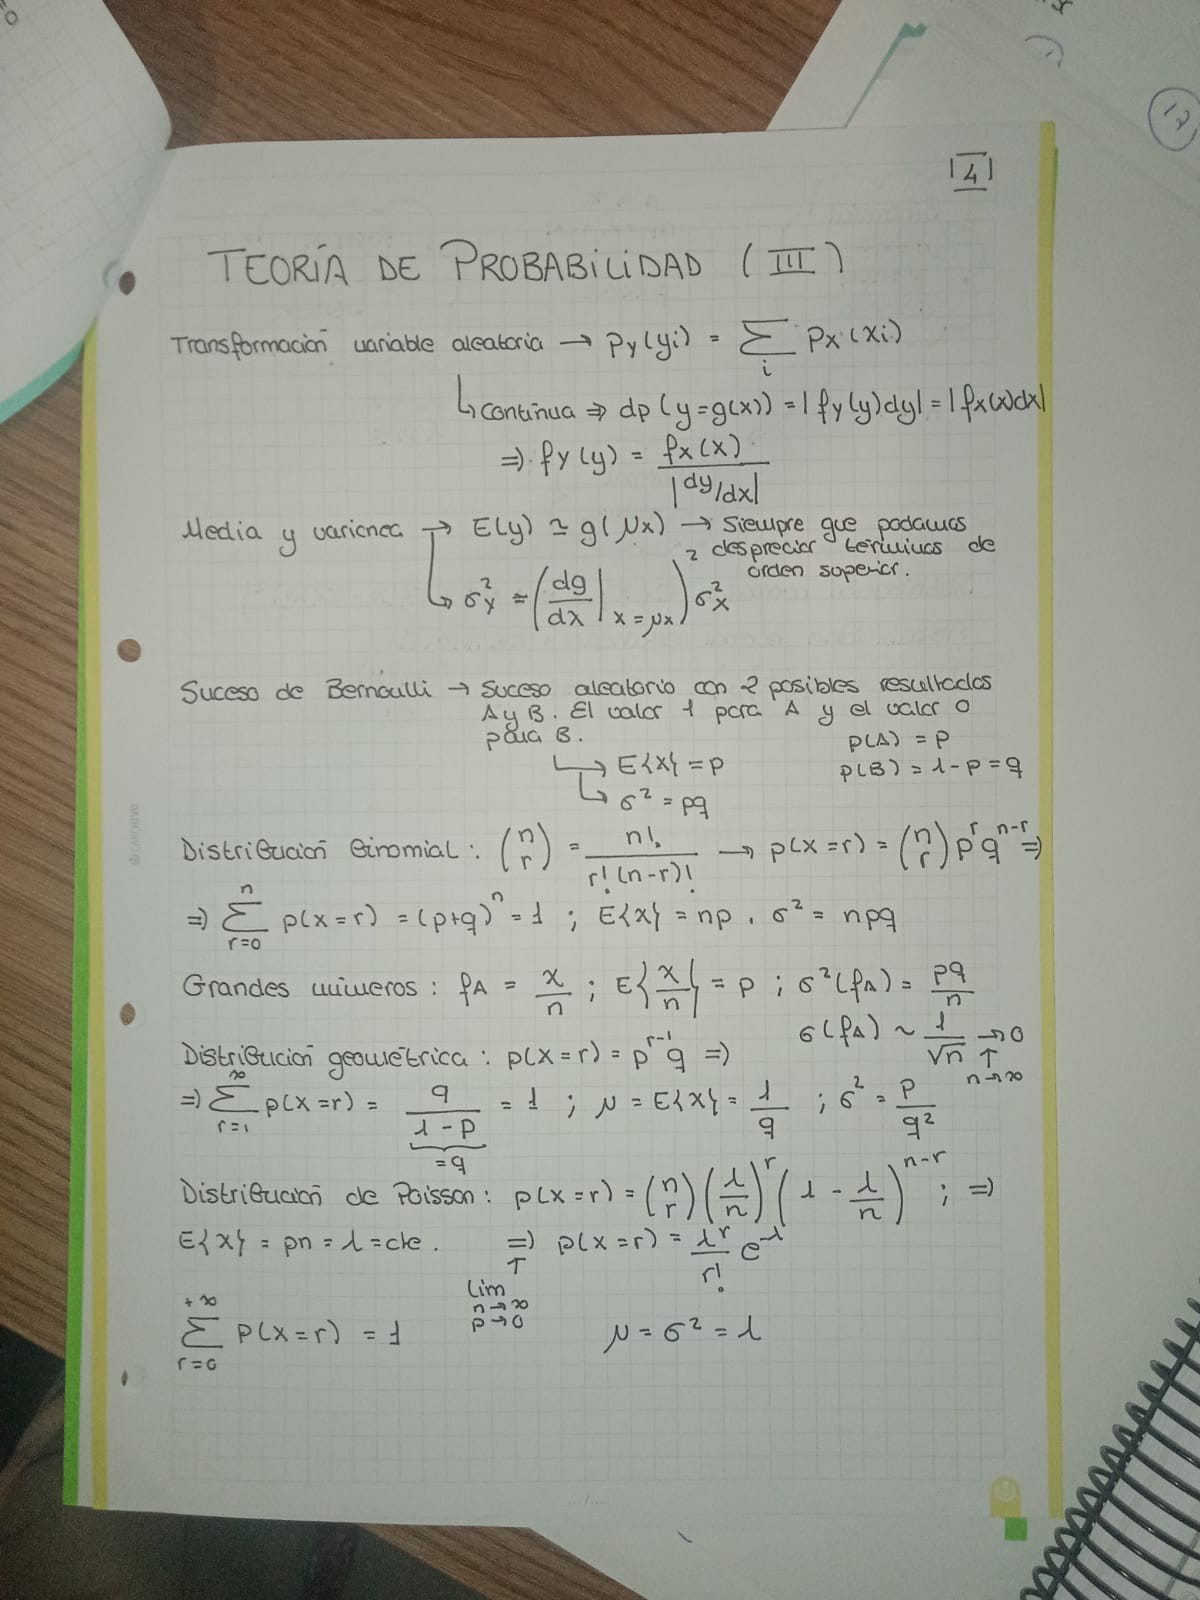 |4|
TEORÍA DE PROBABILIDAD (III)
Transformación variable aleatoria → Py(yi) = Σ_i Px(xi)
↳ continua ⇒ dp(y=g(x)) = |fy(y)dy| = |fx(x)dx|
⇒ fy(y) = fx(x) / |dy/dx|
Media y varianza → E(y) ≃ g(μx) → Siempre que podamos
despreciar términos de
orden superior.
↳ σ²y ≃ (dg/dx |x=μx)² σ²x
Suceso de Bernoulli → Suceso aleatorio con 2 posibles resultados
A y B. El valor 1 para A y el valor 0
para B.
p(A) = p
↳ E{x} = p
p(B) = 1-p = q
↳ σ² = pq
Distribución binomial: (n r) = n! / r!(n-r)! → p(x=r) = (n r) p^r q^(n-r) ⇒
⇒ Σ_{r=0}^{n} p(x=r) = (p+q)^n = 1 ; E{x} = np . σ² = npq
Grandes números: fA = x/n ; E{x/n} = p ; σ²(fA) = pq/n
σ(fA) ~ 1/√n → 0
n→∞
Distribución geométrica: p(x=r) = p^(r-1) q ⇒
⇒ Σ_{r=1}^{∞} p(x=r) = q / (1-p) = 1 ; μ = E{x} = 1/q ; σ² = p/q²
=q
Distribución de Poisson: p(x=r) = (n r) (λ/n)^r (1 - λ/n)^(n-r) ; ⇒
E{x} = pn = λ = cte. ⇒ p(x=r) = λ^r/r! e^-λ
lim
n→∞
p→0
Σ_{r=0}^{+∞} p(x=r) = 1
μ = σ² = λ
12